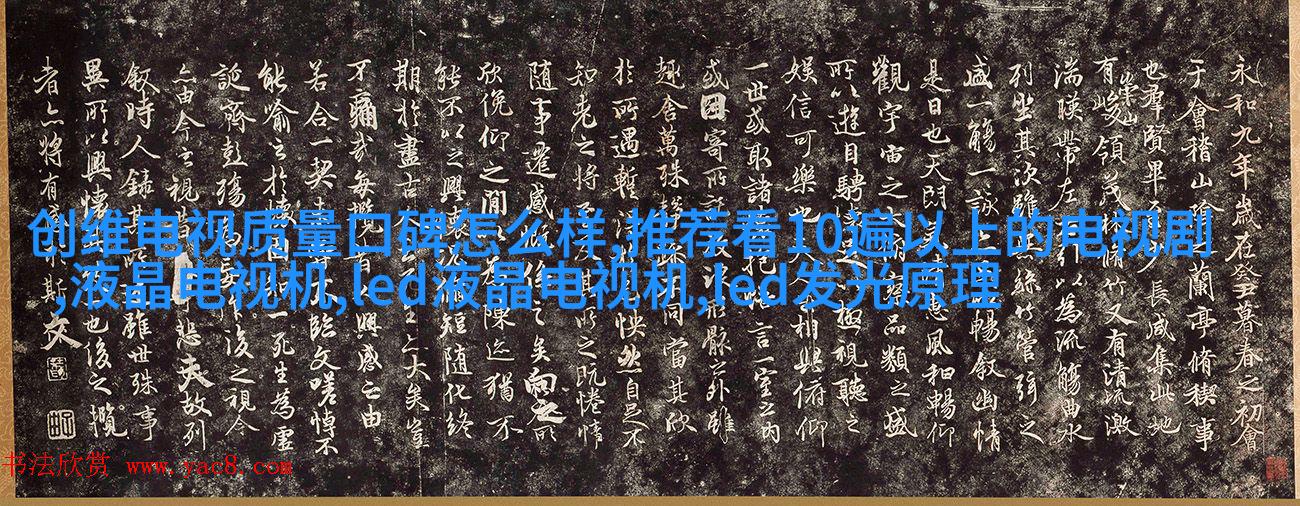 创维电视质量口碑怎么样,推荐看10遍以上的电视剧
,液晶电视机,led液晶电视机,led发光原理
永和九年歲在癸丑暮春之初會
于會稽山陰之蘭亭脩稧事
也羣賢畢至少長咸集此地
有崇山峻領茂林脩竹又有清流激
湍暎帶左右引以為流觴曲水
列坐其次雖無絲竹管弦之
盛一觴一詠亦足以暢敘幽情
是日也天朗氣清惠風和暢仰
觀宇宙之大俯察品類之盛
所以遊目騁懷足以極視聽之
娛信可樂也夫人之相與俯仰
一世或取諸懷抱悟言一室之內
或因寄所託放浪形骸之外雖
趣舍萬殊靜躁不同當其欣
於所遇暫得於己怏然自足不
知老之將至及其所之既惓情
隨事遷感慨係之矣向之所
欣俛仰之間以為陳迹猶不
能不以之興懷況脩短隨化終
期於盡古人云死生亦大矣豈
不痛哉每攬昔人興感之由
若合一契未嘗不臨文嗟悼不
能喻之於懷固知一死生為虛
誕齊彭殤為妄作後之視今
亦由今之視昔悲夫故列
敘時人錄其所述雖世殊事
異所以興懷其致一也後之攬
者亦將有感於斯文
书法欣赏 www.yac8.com